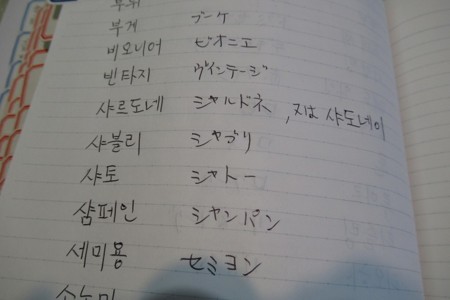 부게 ブーケ
비오니어 ビオニエ
빈타지 ヴィンテージ
샤르도네 シャルドネ , 又は 샤도네이
샤블리 シャブリ
샤토 シャトー
샴페인 シャンパン
세미용 セミヨン